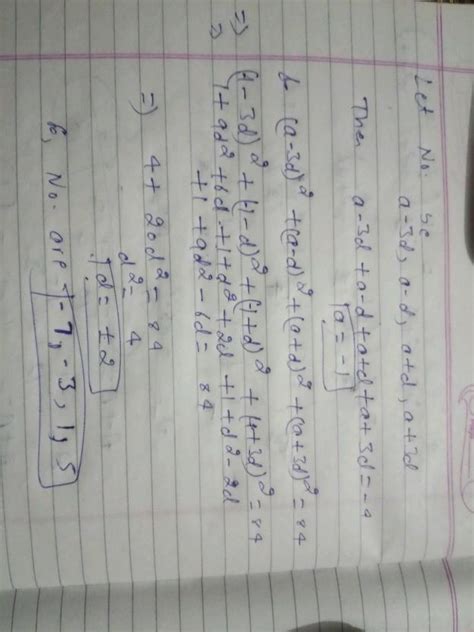 Let No. be
a-3d, a-d, a+d, a+3d
Then a-3d+a-d+a+d+a+3d=-4
a=-1
& (a-3d)²+(a-d)²+(a+d)²+(a+3d)²=84
=> (1-3d)²+(1-d)²+(1+d)²+(1+3d)²=84
=> 1+9d²+6d+1+d²+2d+1+d²-2d
+1+9d²-6d=84
=> 4+20d²=84
d²=4
d=±2
No. are -7,-3,1,5